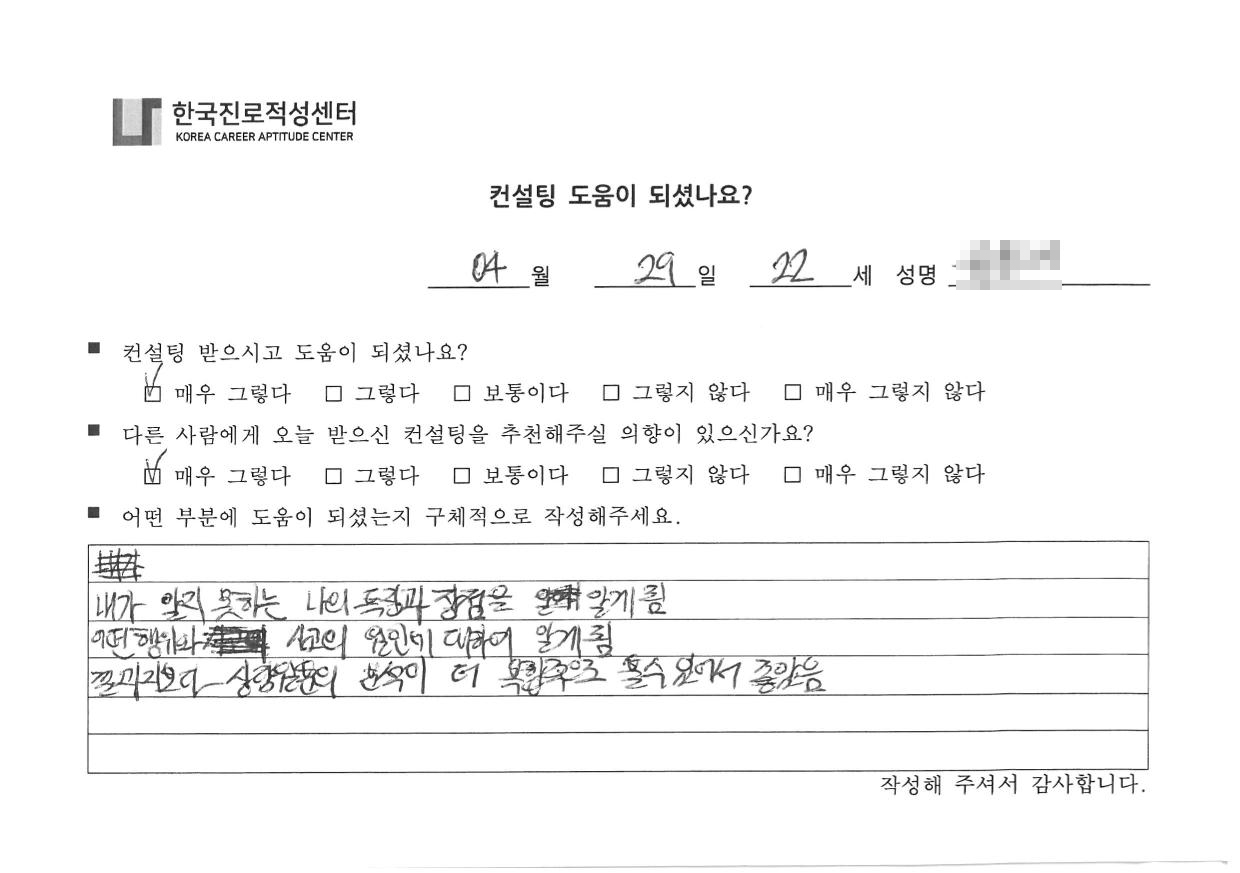 한국진로적성센터
KOREA CAREER APTITUDE CENTER
컨설팅 도움이 되셨나요?
04 월 29 일 22 세 성명
■ 컨설팅 받으시고 도움이 되셨나요?
☑ 매우 그렇다 □ 그렇다 □ 보통이다 □ 그렇지 않다 □ 매우 그렇지 않다
■ 다른 사람에게 오늘 받으신 컨설팅을 추천해주실 의향이 있으신가요?
☑ 매우 그렇다 □ 그렇다 □ 보통이다 □ 그렇지 않다 □ 매우 그렇지 않다
■ 어떤 부분에 도움이 되셨는지 구체적으로 작성해주세요.
내가 알지 못하는 나의 과 장점을 알게 됨
어떤 행위와 사고의 원인에 대하여 알게 됨
분석이 더 볼 수 있어서 좋았음
작성해 주셔서 감사합니다.